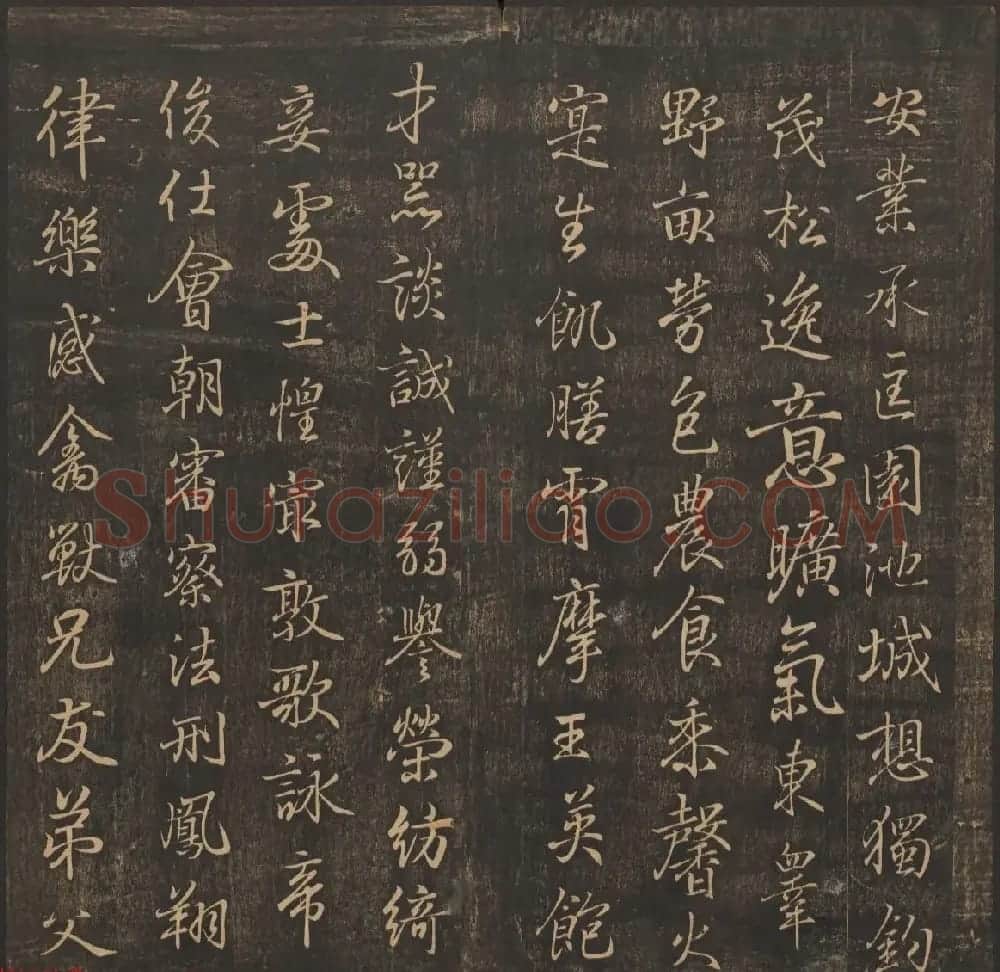 安業承匡園池城想獨釣
茂松逸意曠氣東睾
野畝勞色農食黍馨火
寔生飢膳宵摩王英飽
才器談誠謹弱譽榮紡綺
妾處士惶宗敦歌詠帝
俊仕會朝審察法刑鳳翔
律樂感禽獸兄友弟父
Shufaziliao.COM